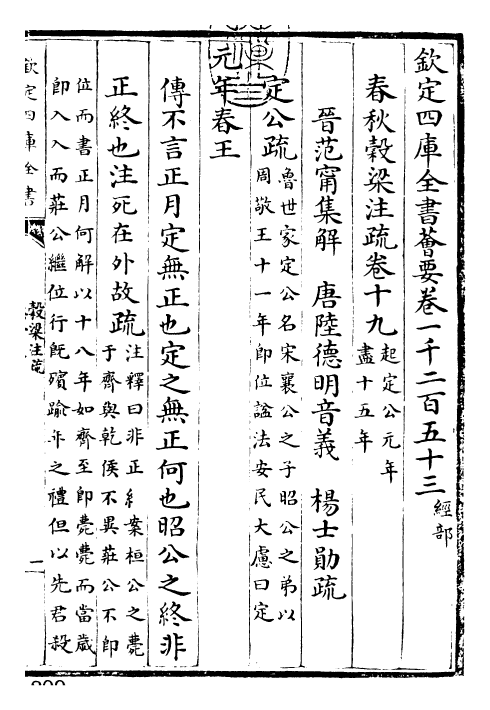 欽定四庫全書薈要卷一千二百五十三 經部
春秋穀梁注疏卷十九 起定公元年
盡十五年
晉范甯集解 唐陸德明音義 楊士勛疏
定公疏 魯世家定公名宋襄公之子昭公之弟以
周敬王十一年即位諡法安民大慮曰定
元年春王
傳不言正月定無正也定之無正何也昭公之終非
正終也注死在外故疏 注釋曰非正終案桓公之薨
于齊與乾侯不異莊公不即
位而書正月何解以十八年如齊至即薨薨而當歲
即入入而莊公繼位行既殯踰年之禮但以先君殺
欽定四庫全書
穀梁注疏
一